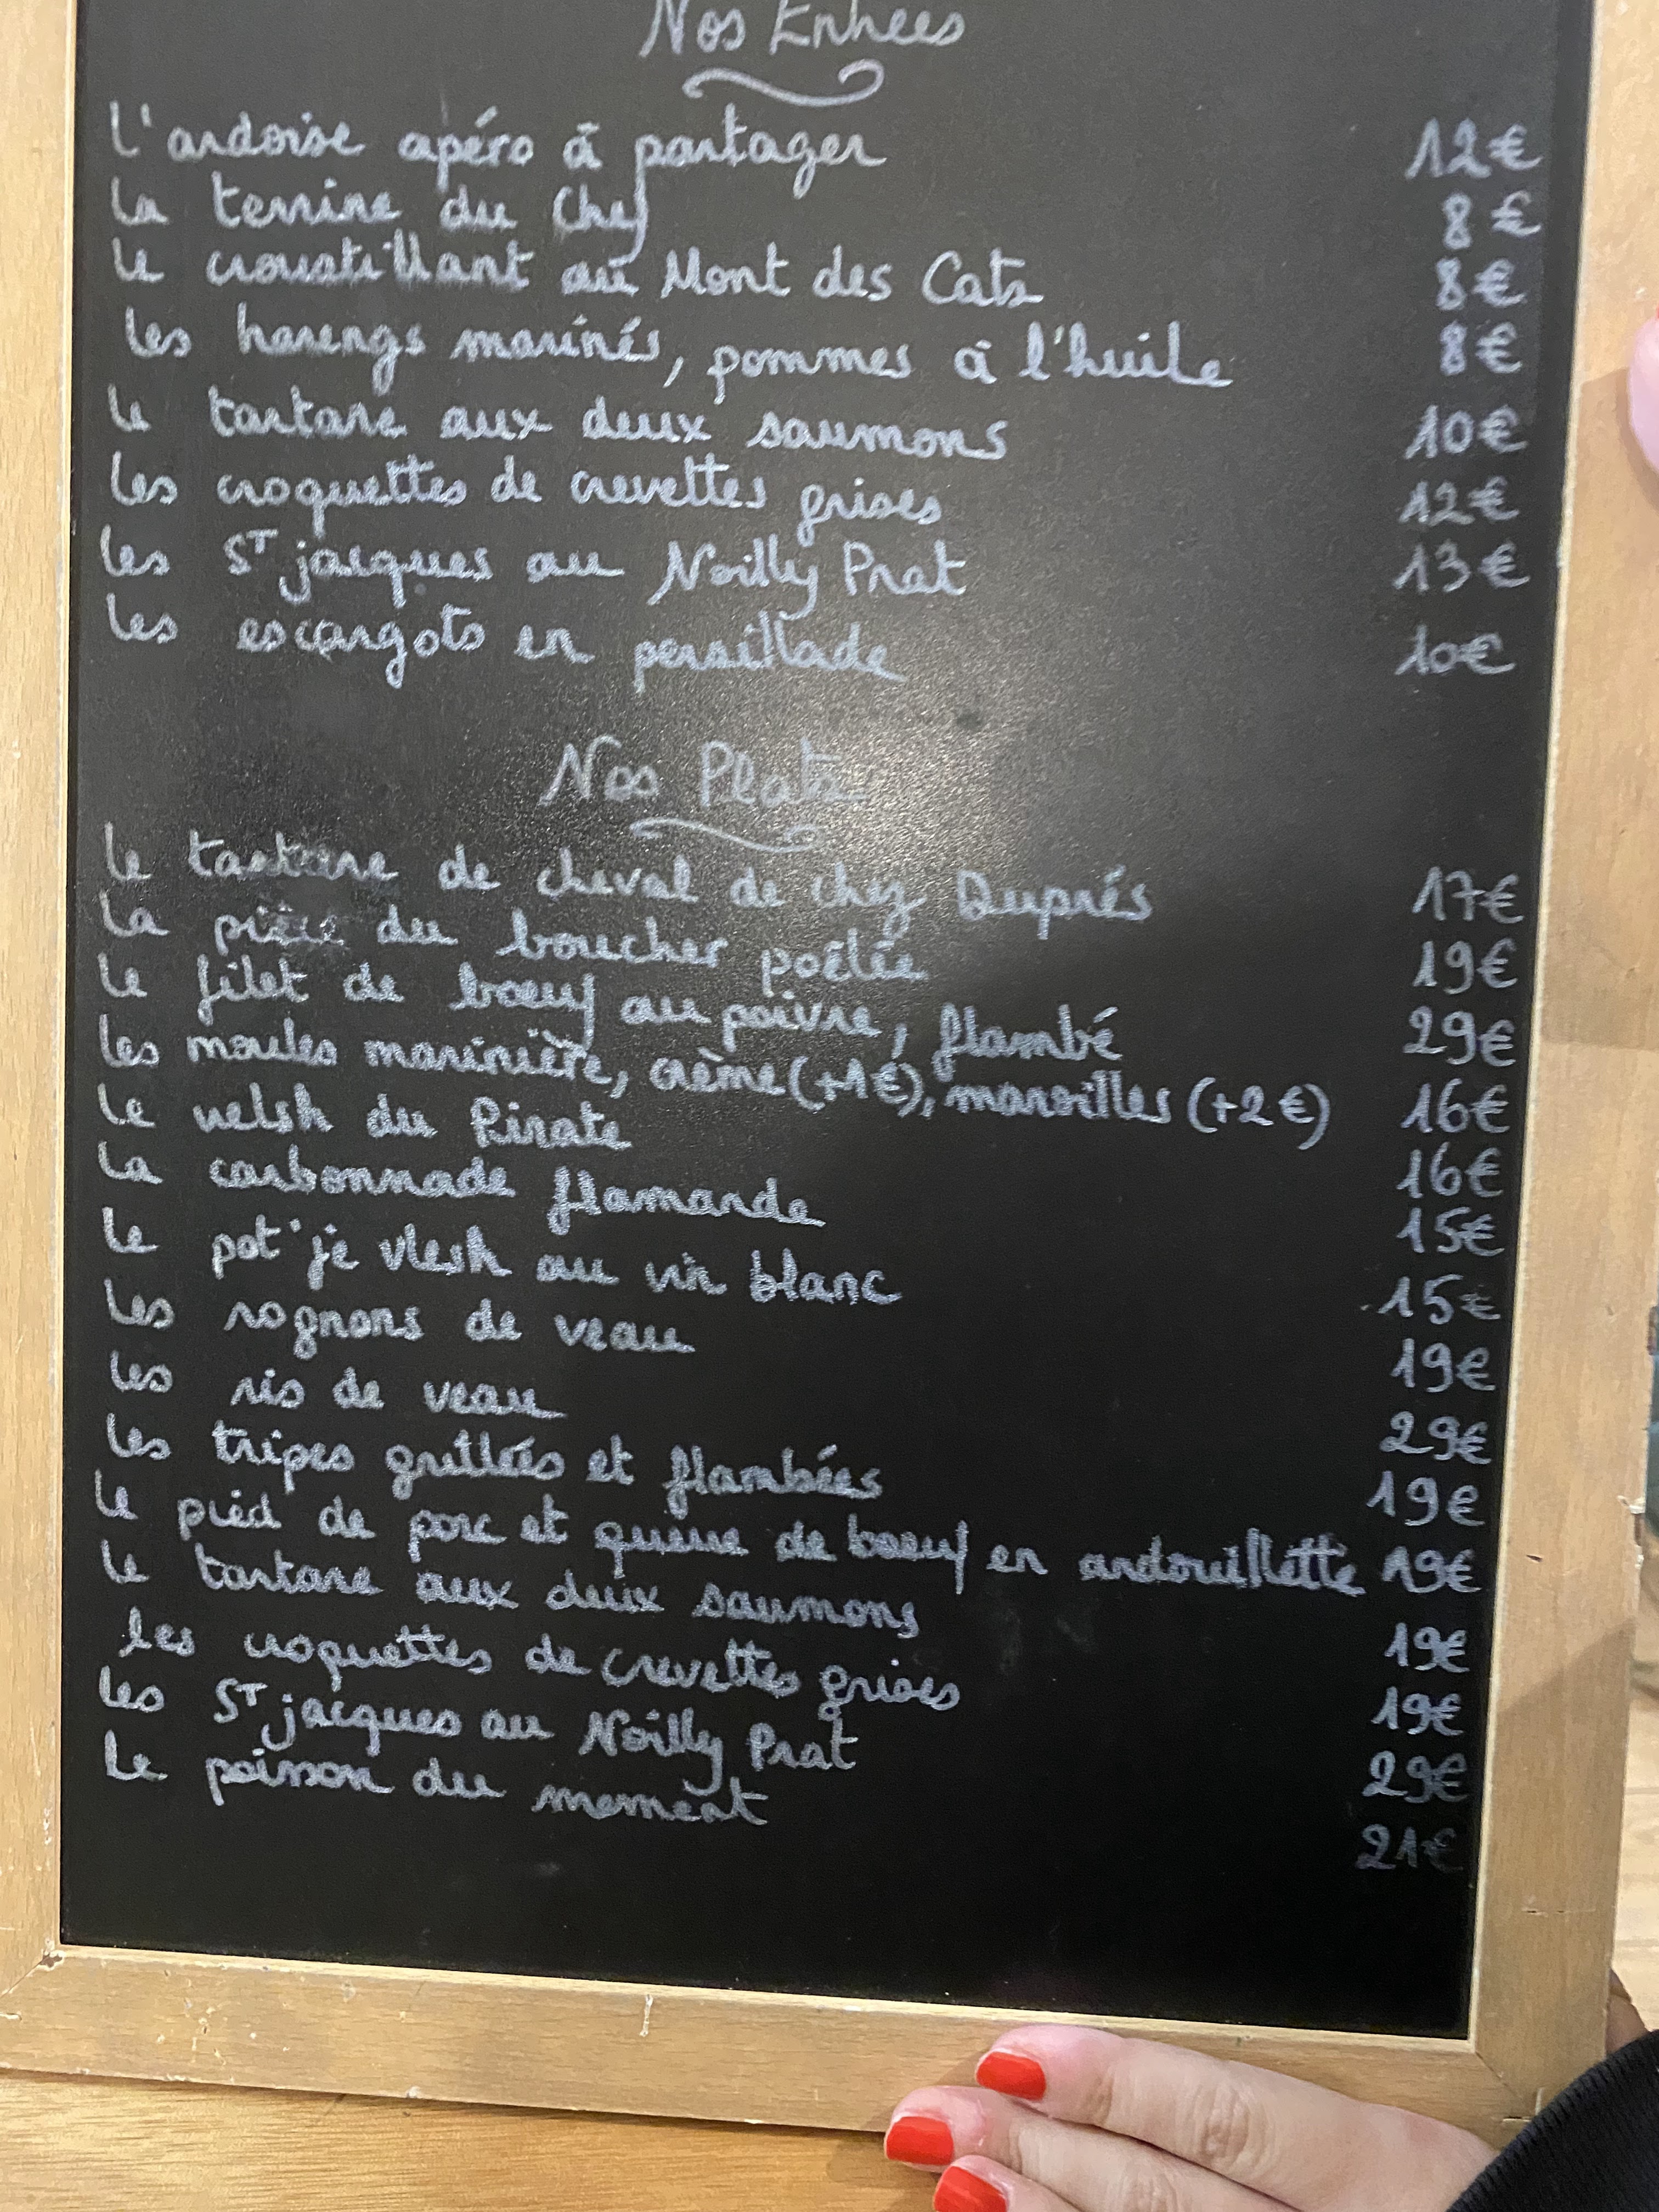 Nos Entrées
L'ardoise apéro à partager 12€
La terrine du Chef 8€
Le croustillant au Mont des Cats 8€
Les harengs marinés, pommes à l'huile 8€
Le tartare aux deux saumons 10€
Les croquettes de crevettes grises 12€
Les ST jacques au Noilly Prat 13€
Les escargots en persillade 10€
Nos Plats
Le tartare de cheval de chez Duprés 17€
La pièce du boucher poêlée 19€
Le filet de bœuf au poivre, flambé 29€
Les moules marinière, crème (+1€), maroilles (+2€) 16€
Le welsh du Pirate 16€
La carbonnade flamande 15€
Le pot' je vlesh au vin blanc 15€
Les rognons de veau 19€
Les ris de veau 29€
Les tripes grillées et flambées 19€
Le pied de porc et queue de bœuf en andouillette 19€
Le tartare aux deux saumons 19€
Les croquettes de crevettes grises 19€
Les ST jacques au Noilly Prat 29€
Le poisson du moment 21€